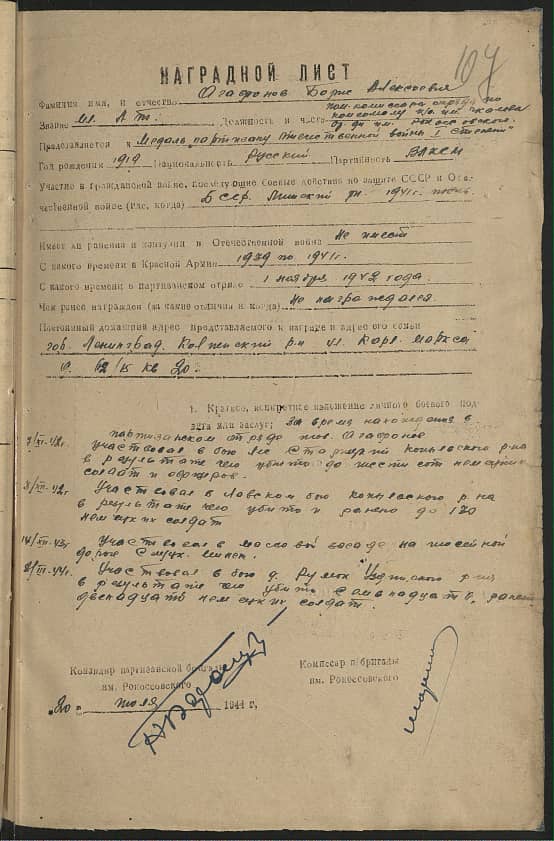 107
НАГРАДНОЙ ЛИСТ
Фамилия имя, и отчество Агафонов Борис Алексеевич
Звание мл. Л-т. Должность и часть пом. комиссара отряда по
комсомолу п/о им. Чкалова
бр-ды им. Рокоссовского.
Представляется к Медаль „партизану отечественной войны I степени"
Год рождения 1919 Национальность Русский Партийность ВЛКСМ
Участие в гражданской войне, последующие боевые действия по защите СССР и Оте-
чественной войсе (где, когда) БССР. Минский 1941г. июнь
Имеет ли ранения и контузии в Отечественной войне Не имеет
С какого времени в Красной Армии 1939 по 1941г.
С какого времени в партизанском отряде 1 ноября 1942 года.
Чем ранее награжден (за какие отличия и когда) Не награждался.
Постоянный домашний адрес представляемого к награде и адрес его семьи
гор. Ленинград. р-н ул. Карл. Маркса
62/15 кв 20.
1. Краткое, конкретное изложение личного боевого под-
вига или заслуг: За время нахождения в
партизанском отряде тов. Агафонов
участвовал в бою Копыльского р-на
в результате чего убито до шести сот немецких
солдат и офицеров.
Участвовал в Лавском бою копыльского р-на
в результате чего убито и ранено до 130
немецких солдат
Участвовал в засаде на шоссейной
дороге Слуцк. Минск.
Участвовал в бою д. Узденского р-на
в результате чего убито семнадцать, ранено
двенадцать немецких солдат.
Командир партизанской бригады
им. Рокоссовского
Комиссар п/бригады
им. Рокоссовского
„20" июля 1944 г,